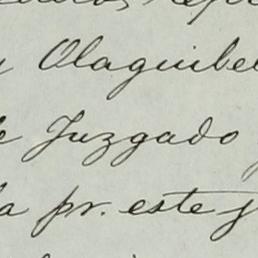 y Olaguibel
de Juzgado
la pr. este j